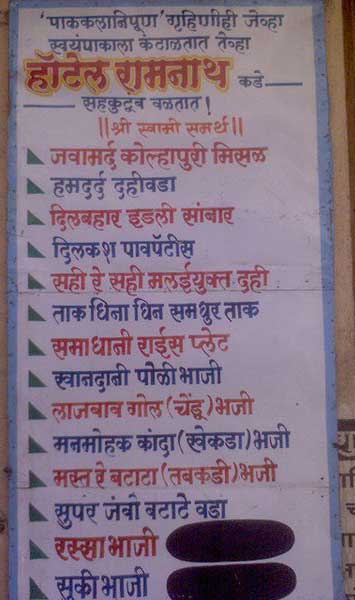 'पाककलानिपूण' गृहिणीही जेव्हा
स्वयंपाकाला कंटाळतात तेव्हा
हॉटेल रामनाथ कडे
सहकुटूंब वळतात!
||श्री स्वामी समर्थ||
जवामर्द कोल्हापुरी मिसळ
हमदर्द दहीवडा
दिलबहार इडली सांबार
दिलकश पावपॅटीस
सही रे सही मलईयुक्त दही
ताक धिना धिन समधुर ताक
समाधानी राईस प्लेट
खानदानी पोळी भाजी
लाजबाव गोल (चेंडू) भजी
मनमोहक कांदा (खेकडा) भजी
मस्त रे बटाटा (तबकडी) भजी
सुपर जंबो बटाटे वडा
रस्सा भाजी
सुकी भाजी